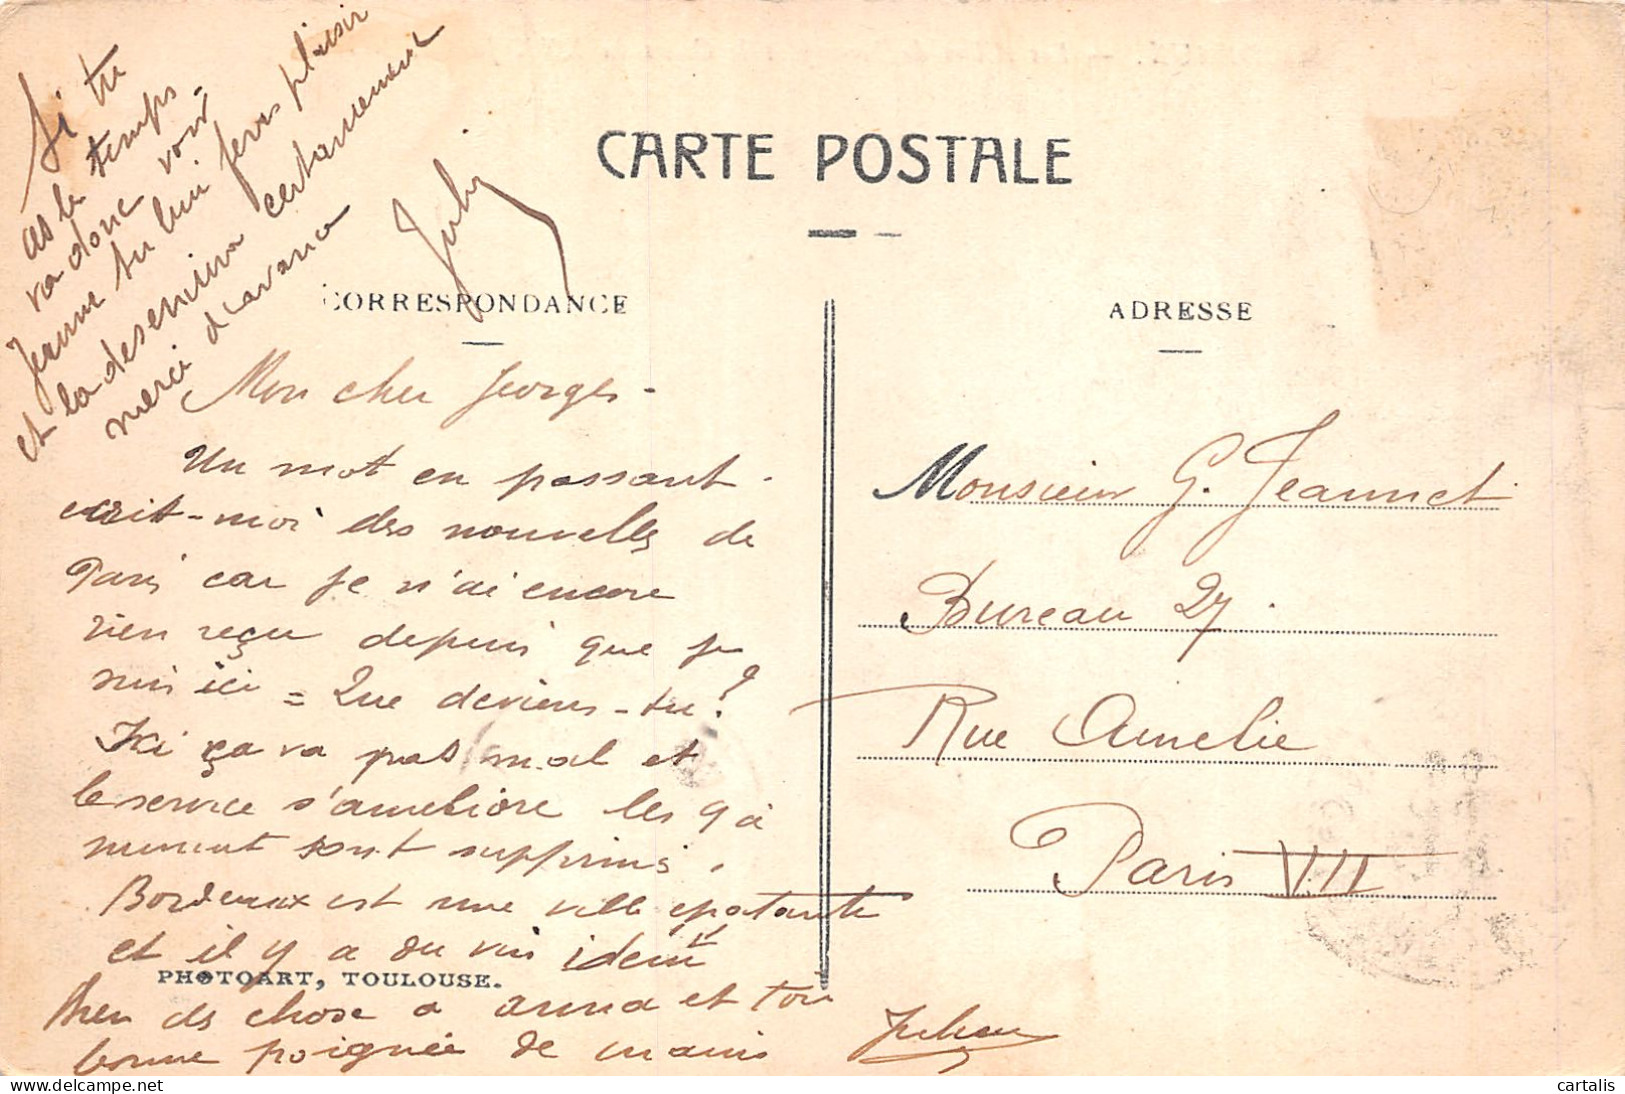 Si tu
as le temps
va donc voir
Jeanne tu lui feras plaisir
et la desennuira certainement
merci d'avance
CARTE POSTALE
CORRESPONDANCE
ADRESSE
Mon cher Georges -
Un mot en passant -
ecrit-moi des nouvelles de
Paris car je n'ai encore
rien reçu depuis que je
suis ici = Que deviens-tu?
Ici ça va pas mal et
le service s'ameliore les 9 à
sont supprimés.
Bordeaux est une ville epatante
et il y a du vin idem
bien des chose a anna et toi
bonne poignée de mains
Julien
PHOTOART, TOULOUSE.
Monsieur G. Jeannet
Bureau 27.
Rue Amelie
Paris VII
cartalis